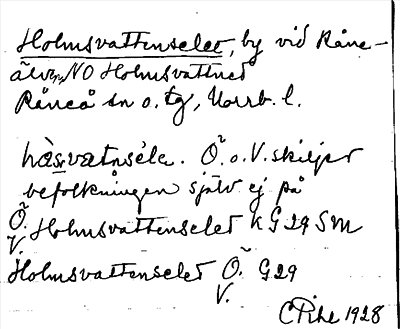 Holmsvattenselet, by vid Råne-
älv, NO Holmsvattnet
Råneå sn o. tg, Norrb. l.
hòsvatnsèle. Ö. o. V. skiljer
befolkningen själv ej på
Ö. V. Holmsvattenselet K G 29 SM
Holmsvattenselet Ö. V. G 29
C Pihl 1928